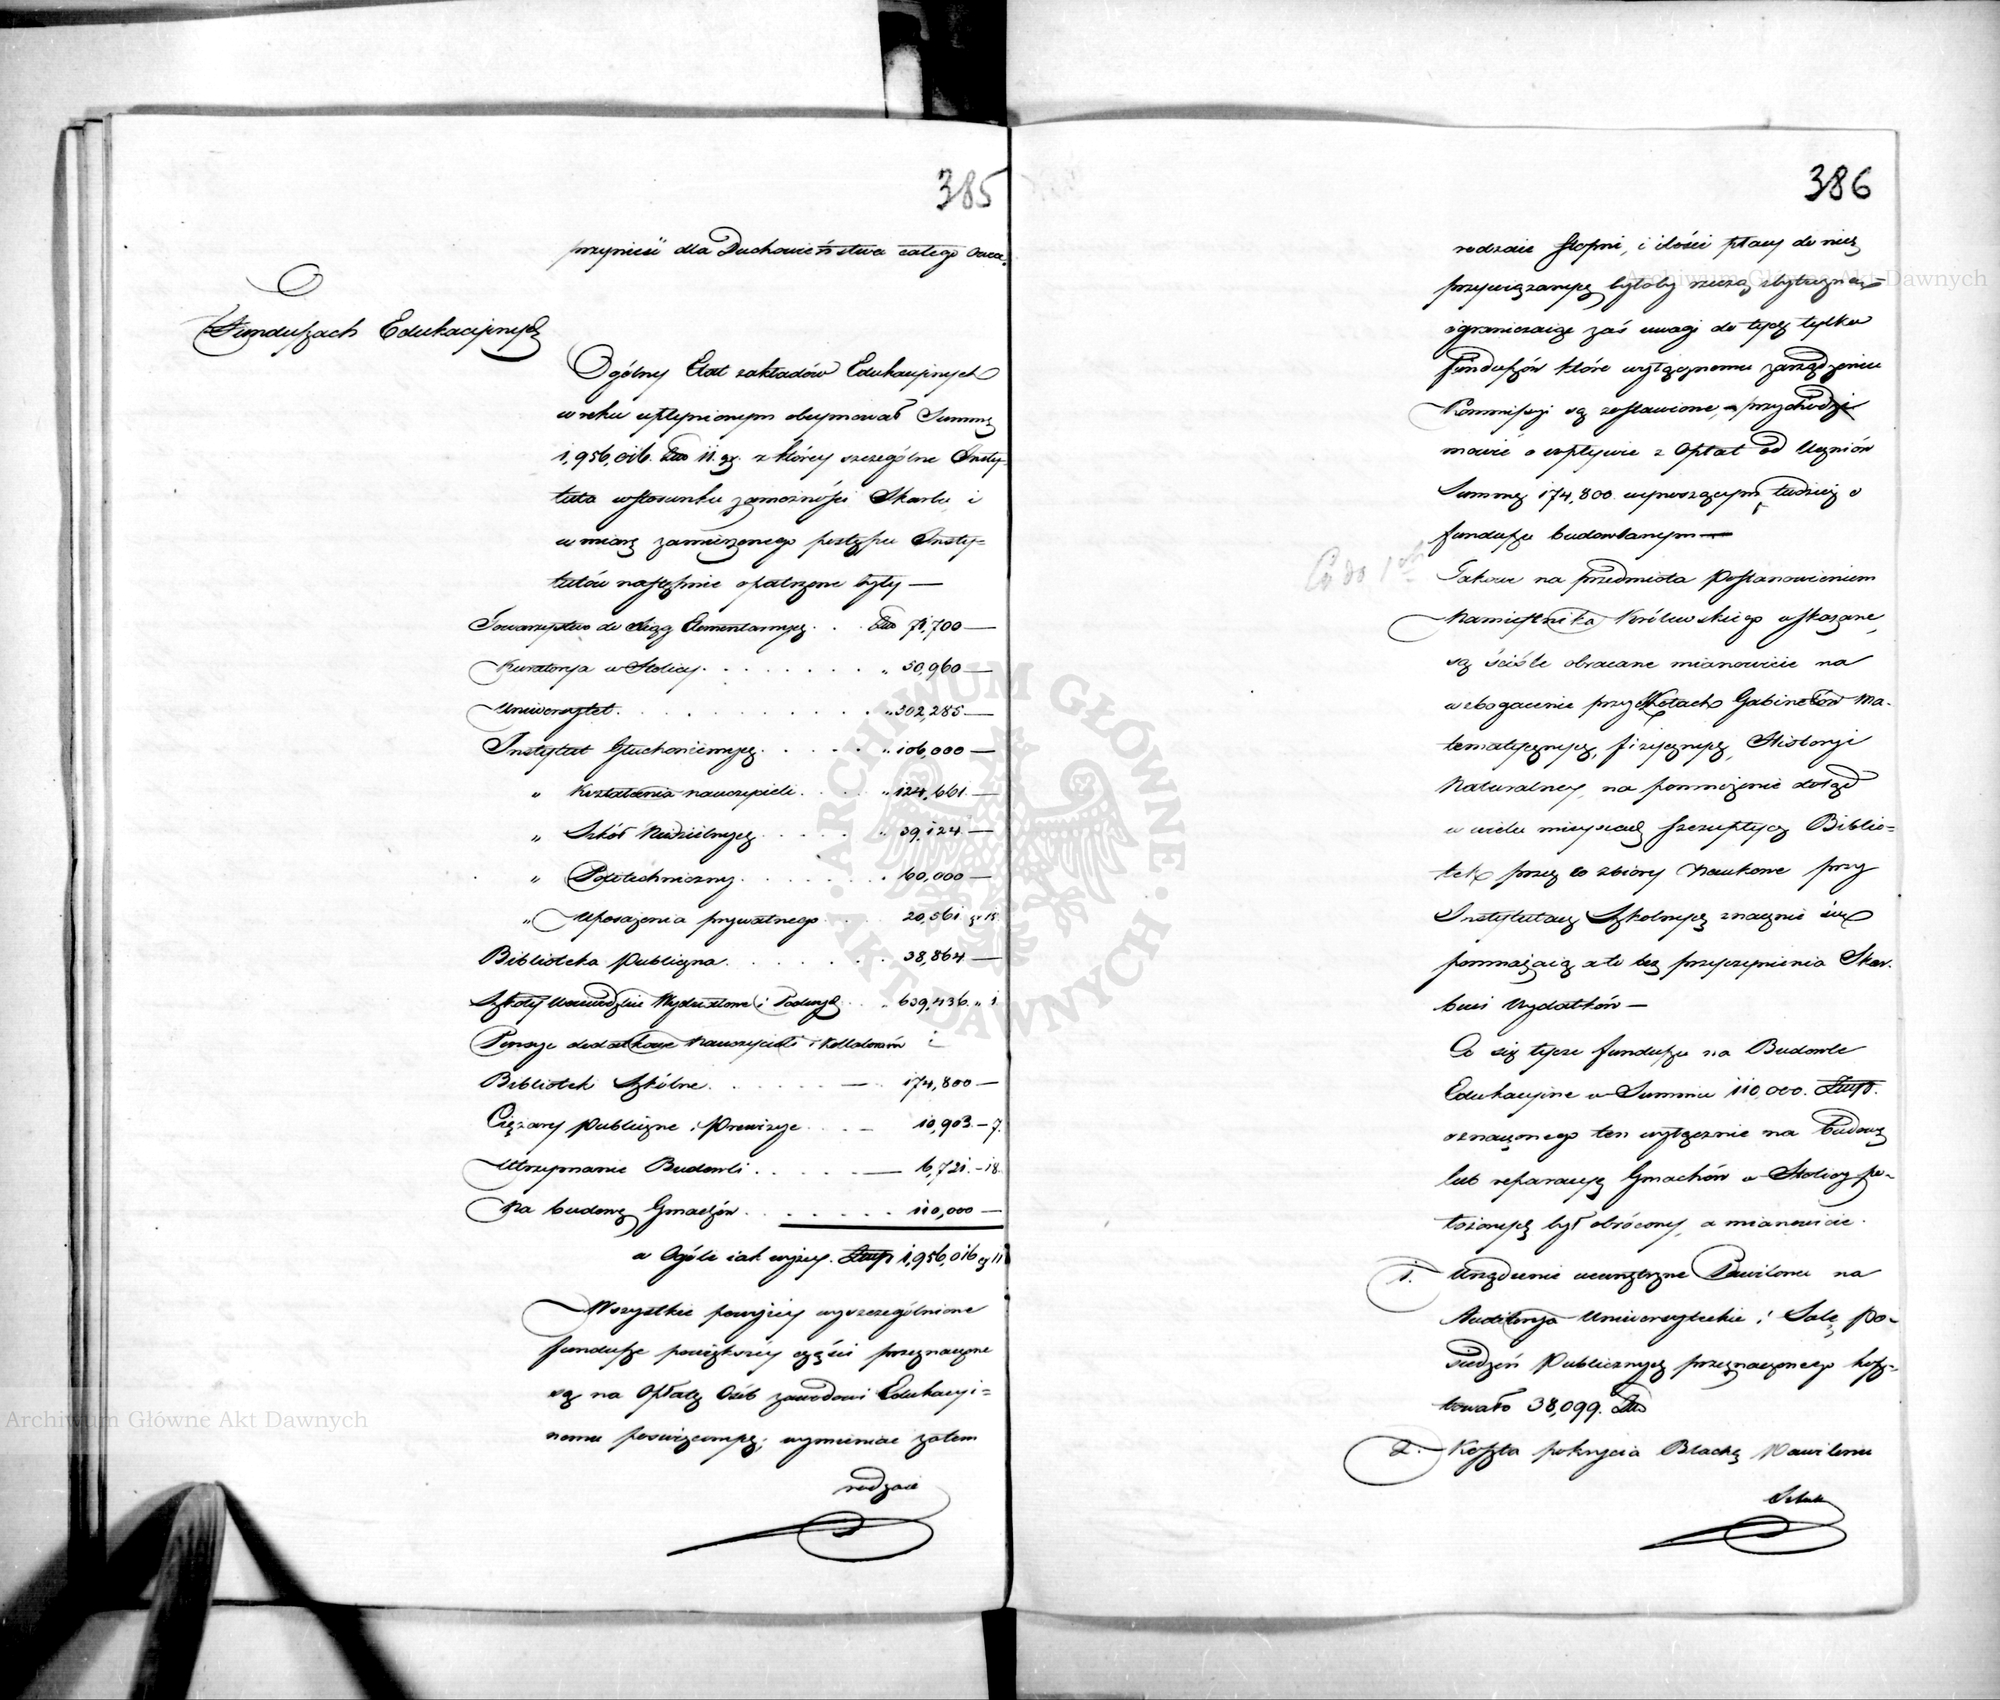 385
przynieść dla Duchowieństwa całego owoce.
O
Funduszach Edukacyjnych
Ogólny Etat zakładów Edukacyjnych
w roku upłynionym obeymował Summę
1,956,016. Złł 11. gr. z którey szczególne Insty-
tuta w stosunku zamożności Skarbu, i
w miarę zamierzonego postępu Insty-
tutów następnie opatrzone były —
Towarzystwo do Xiąg Elementarnych . . 71,700 —
Kuratorya w Stolicy . . . . . . . „ 50,960 —
Uniwersytet . . . . . . . . . . „ 302,285 —
Instytut Głuchoniemych . . . . . „ 106,000 —
„ Kształcenia nauczycieli . . . . „ 124,661 —
„ Szkół Niedzielnych . . . . . „ 39,124 —
„ Politechniczny . . . . . . . 60,000 —
„ Uposażenia prywatnego . . . 20,561 gr 15
Biblioteka Publiczna . . . . . . . 38,864 —
Szkoły Woiewódzkie Wydziałowe i Podwydz. . . „ 639,436 „ 1
Pensye dodatkowe Nauczycieli i Kollaborów i
Bibliotek Szkólne . . . . . — 174,800 —
Ciężary Publiczne i Prowizye . . — 10,903 — 7.
Utrzymanie Budowli . . . . . — 6,721. — 18.
Na budowę Gmachów . . . . . . . 110,000 —
w Ogóle iak wyżey. Złłp 1,956,016 gr 11
Wszystkie powyżey wyszczególnione
fundusze powiększey części przeznaczone
są na Opłatę Osób zawodowi Edukacyi-
nemu poświęconych; wymieniać zatem
rodzaie
386
rodzaie Stopni, i ilości płacy do nich
przywiązanych byłoby rzeczą zbyteczną,
ograniczaiąc zaś uwagi do tych tylko
Funduszów które wyłącznemu zarządzeniu
Kommissyi są zostawione, przychodzi
mówić o wpływie z Opłat od Uczniów
Summę 174,800. wynoszącym, tudzież o
funduszu budowlanym —
Co do 1go
Takowe na przedmiota Postanowieniem
Namiestnika Królewskiego wskazane,
są ściśle obracane mianowicie na
wzbogacenie przy Szkołach Gabinetów Ma-
tematycznych, fizycznych, Historyi
Naturalney, na pomnożenie dotąd
w wielu mieyscach szczupłych Biblio-
tek przez co zbiory Naukowe przy
Instytutach Szkolnych znacznie się
pomnażaią a to bez przyczynienia Skar-
bowi Wydatków —
Co się tycze funduszu na Budowle
Edukacyine w Summie 110,000. Złłp.
oznaczonego ten wyłącznie na budowę
lub reparacyę Gmachów w Stolicy po-
łożonych był obrócony, a mianowicie.
1. Urządzenie wewnętrzne Pawilonu na
Auditorya Uniwersyteckie i Salę Po-
siedzeń Publicznych przeznaczonego kosz-
towało 38,099. Złł
2. Koszta pokrycia Blachą Pawilonu
Sztuk
Archiwum Główne Akt Dawnych
Archiwum Główne Akt Dawnych
ARCHIWUM GŁÓWNE · AKT DAWNYCH ·